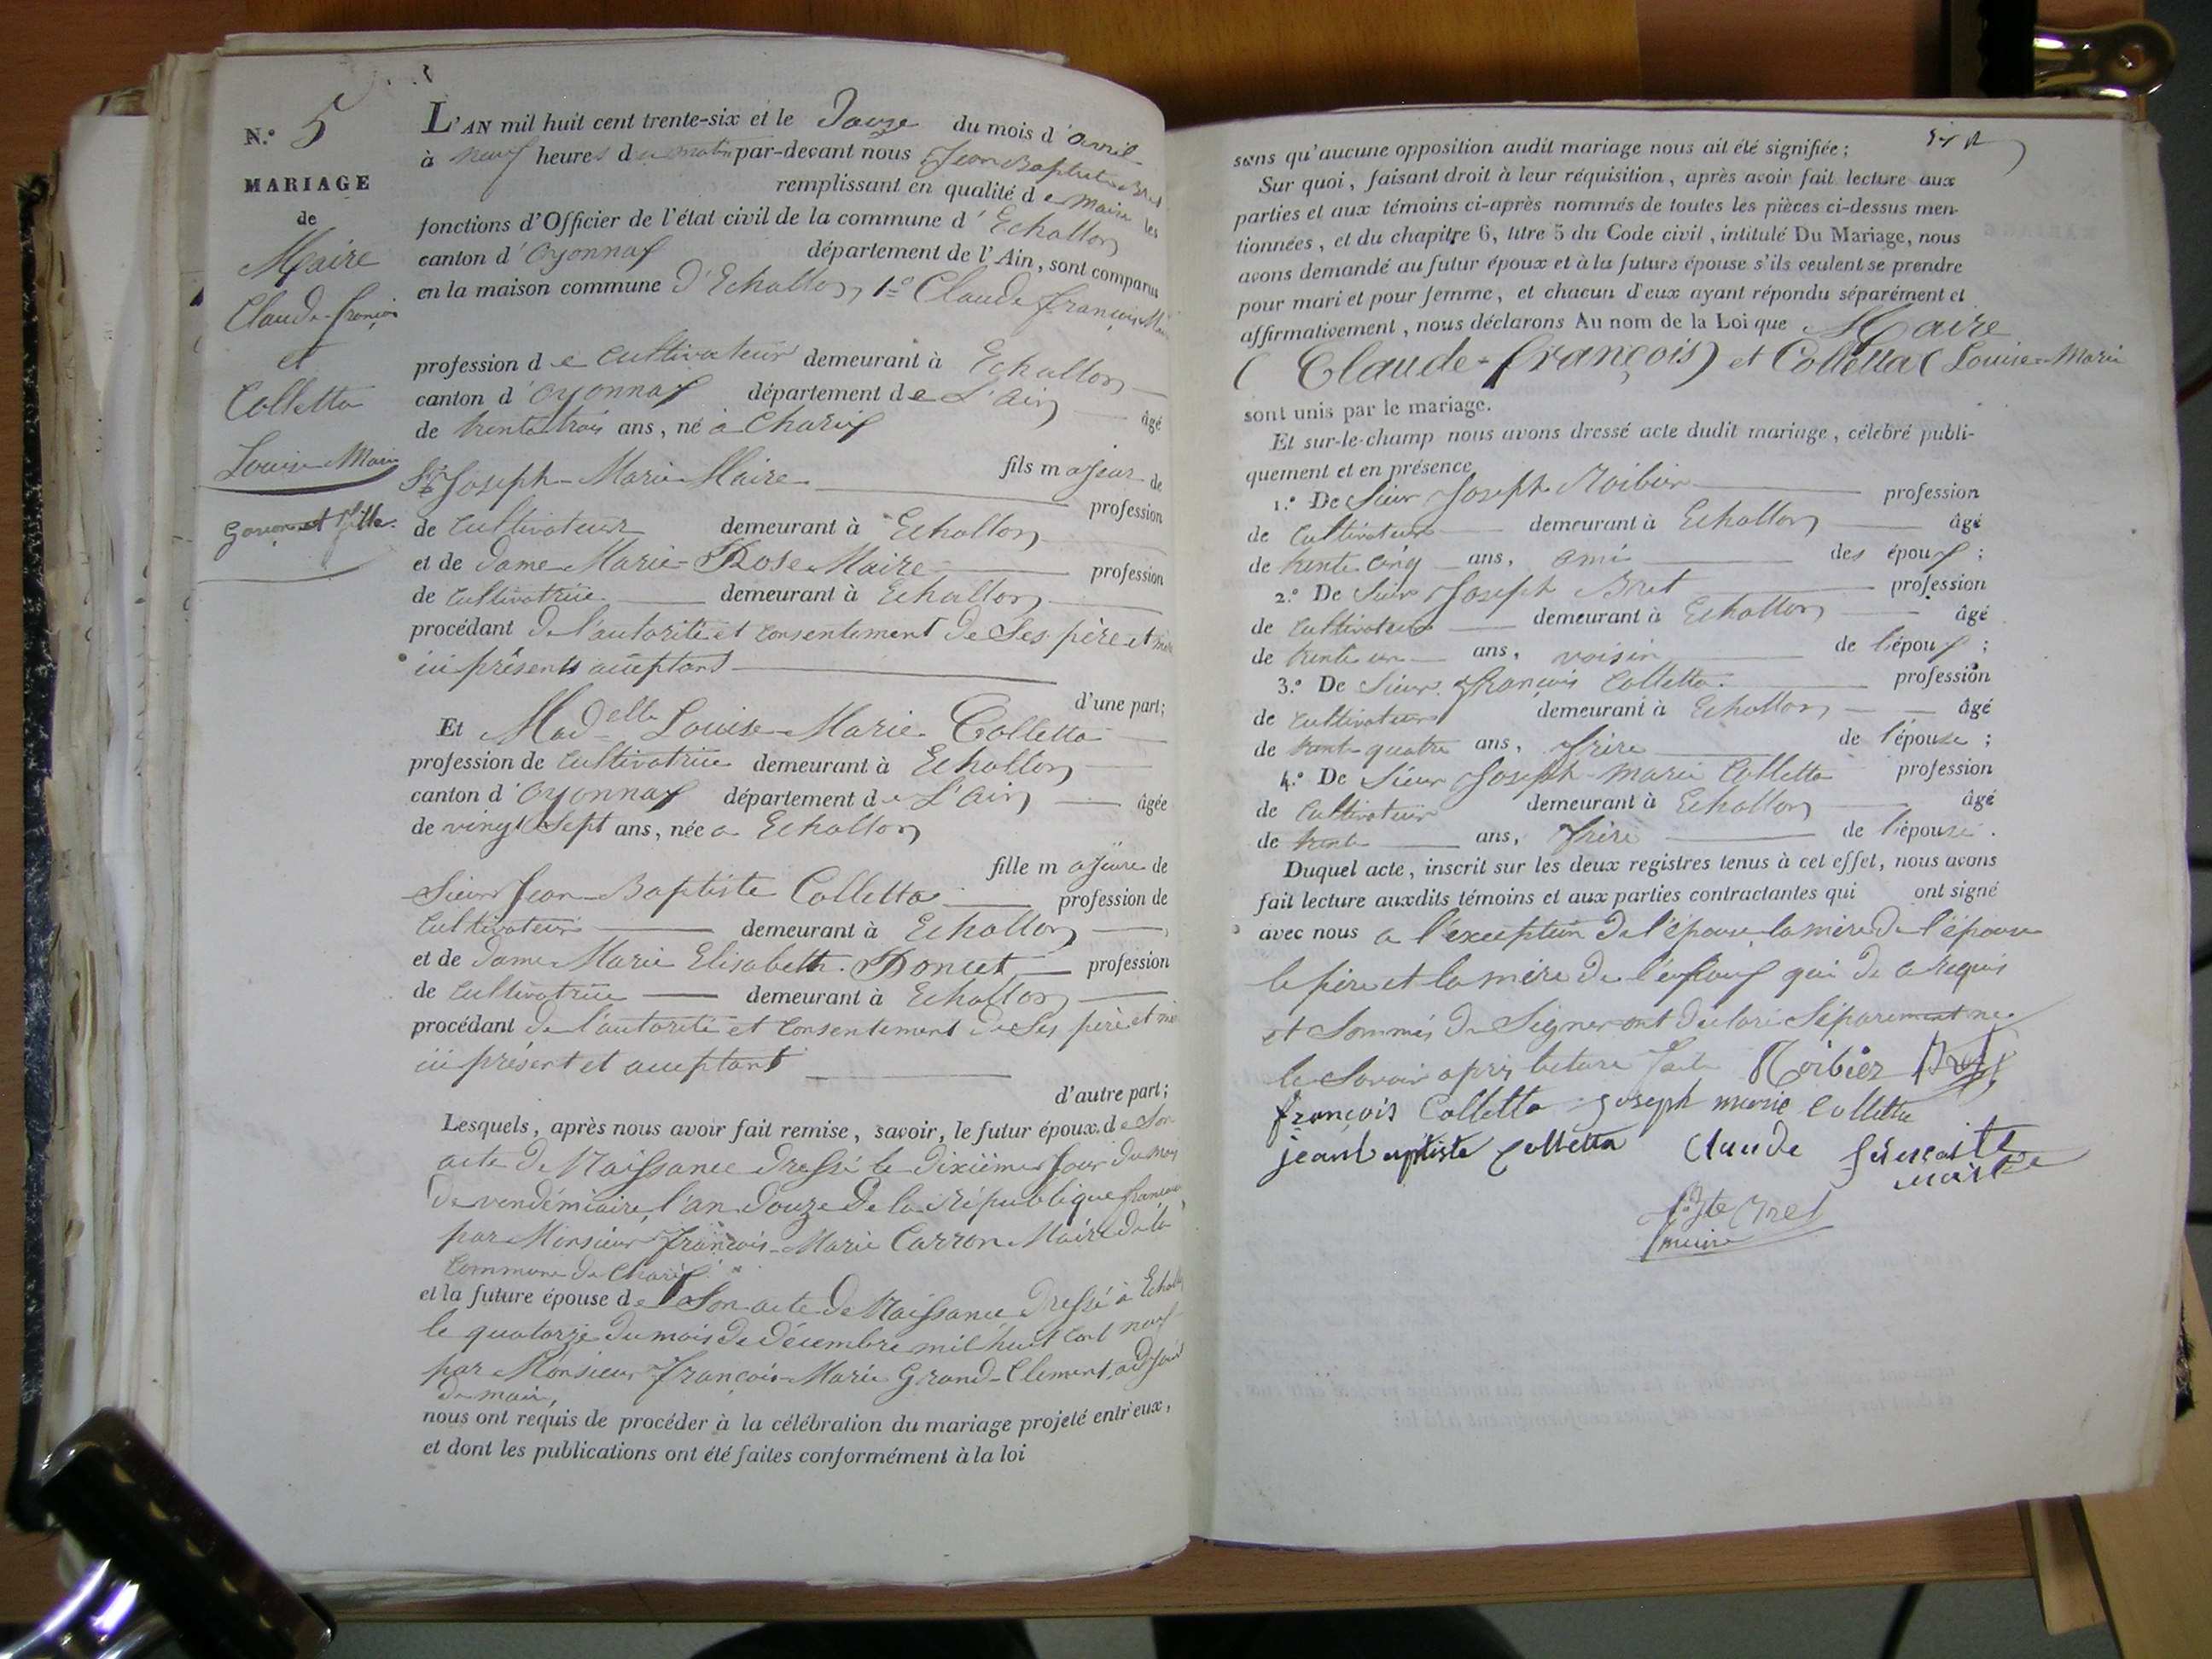 N.º 5
MARIAGE
de
Maire
Claude-françois
et
Colletta
Louise-Marie
Garçon et fille.
L'AN mil huit cent trente-six et le Douze du mois d'avril
à neuf heures du matin par-devant nous Jean Baptiste Bret
remplissant en qualité de Maire les
fonctions d'Officier de l'état civil de la commune d'Echallon
canton d'Oyonnax département de l'Ain, sont comparus
en la maison commune D'Echallon, 1º Claude françois Maire
profession de cultivateur demeurant à Echallon
canton d'Oyonnax département de L'ain âgé
de trente trois ans, né à Charix
fils majeur de
Sr Joseph-Marie Maire profession
de Cultivateur demeurant à Echallon
et de Dame Marie-Rose Maire profession
de Cultivatrice demeurant à Echallon
procédant De l'autorité et consentement De Ses père et mère
ici présents acceptant
d'une part;
Et Madelle Louise-Marie Colletta
profession de Cultivatrice demeurant à Echallon
canton d'Oyonnax département de L'Ain âgée
de vingt Sept ans, née a Echallon
fille majeure de
Sieur Jean Baptiste Colletta profession de
Cultivateur demeurant à Echallon
et de Dame Marie Elisabeth Poncet profession
de Cultivatrice demeurant à Echallon
procédant de l'autorité et consentement de Ses père et mè
ici présent et acceptant
d'autre part;
Lesquels, après nous avoir fait remise, savoir, le futur époux de Son
acte De Naissance Dressé le Dixiéme Jour du mois
De vendémiaire, l'an Douze De la République française
par Monsieur françois-Marie Carron Maire de la
Commune De Charix
et la future épouse de Son acte De Naissance Dressé à Echallon
le quatorze Du mois De Décembre mil huit cent neuf
par Monsieur françois-Marie Grand-Clement, adjoint
du maire,
nous ont requis de procéder à la célébration du mariage projeté entr'eux,
et dont les publications ont été faites conformément à la loi
sans qu'aucune opposition audit mariage nous ait été signifiée;
Sur quoi, faisant droit à leur réquisition, après avoir fait lecture aux
parties et aux témoins ci-après nommés de toutes les pièces ci-dessus men-
tionnées, et du chapitre 6, titre 5 du Code civil, intitulé Du Mariage, nous
avons demandé au futur époux et à la future épouse s'ils veulent se prendre
pour mari et pour femme, et chacun d'eux ayant répondu séparément et
affirmativement, nous déclarons Au nom de la Loi que Maire
( Claude-françois) et Colletta ( Louise-Marie
sont unis par le mariage.
Et sur-le-champ nous avons dressé acte dudit mariage, célébré publi-
quement et en présence
1.º De Sieur Joseph Noibier profession
de Cultivateur demeurant à Echallon âgé
de trente cinq ans, ami des époux;
2.º De Sieur Joseph Bret profession
de Cultivateur demeurant à Echallon âgé
de trente un ans, voisin de l'époux;
3.º De Sieur françois Colletta profession
de Cultivateur demeurant à Echallon âgé
de trente quatre ans, frère de l'épouse;
4.º De Sieur Joseph-marie Colletta profession
de Cultivateur demeurant à Echallon âgé
de trente ans, frère de l'épouse.
Duquel acte, inscrit sur les deux registres tenus à cet effet, nous avons
fait lecture auxdits témoins et aux parties contractantes qui ont signé
avec nous a l'exception De l'épouse, la mère De l'épouse
le père et la mère De l'époux qui De ce Requis
et Sommés De Signer ont Déclaré Séparement ne
le Savoir après lecture faite Noibier Bret
françois Colletta joseph marie Colletta
jean baptiste Colletta Claude françois
maire
Bte Bret
maire